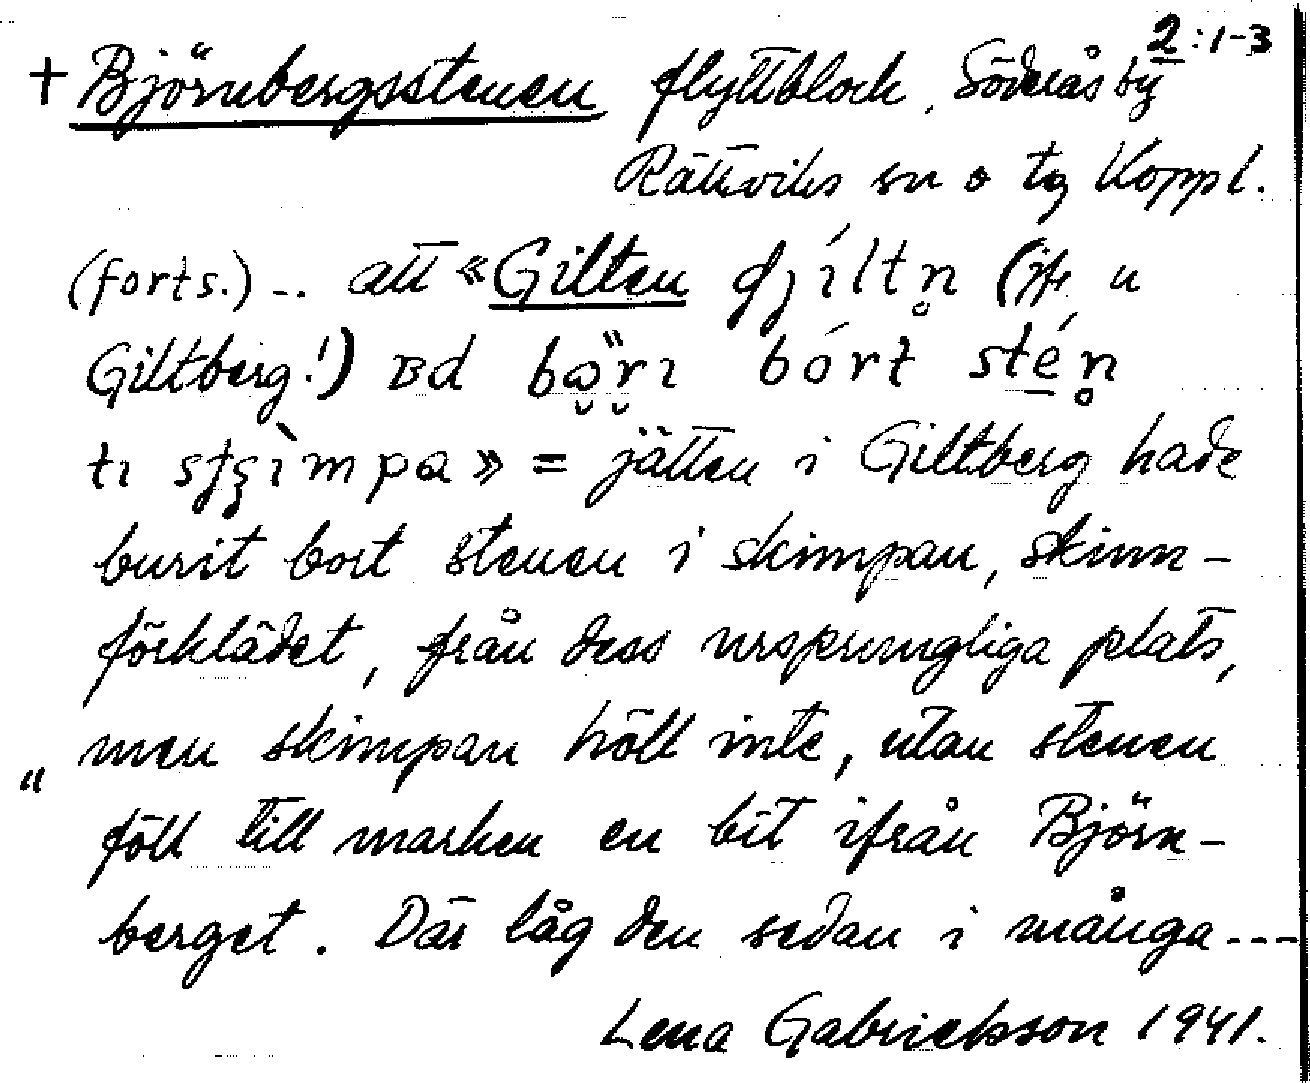 2:1-3
+ Björnbergsstenen flyttblock, Söderås by
Rättviks sn o tg Koppl.
(forts.) ... att «Gilten
Giltberg!) bórt stén
tı » = jätten i Giltberg hade
burit bort stenen i skimpan, skinn-
förklädet, från dess ursprungliga plats,
men skimpan höll inte, utan stenen
föll till marken en bit ifrån Björn-
berget. Där låg den sedan i många ---
Lena Gabrielsson 1941.